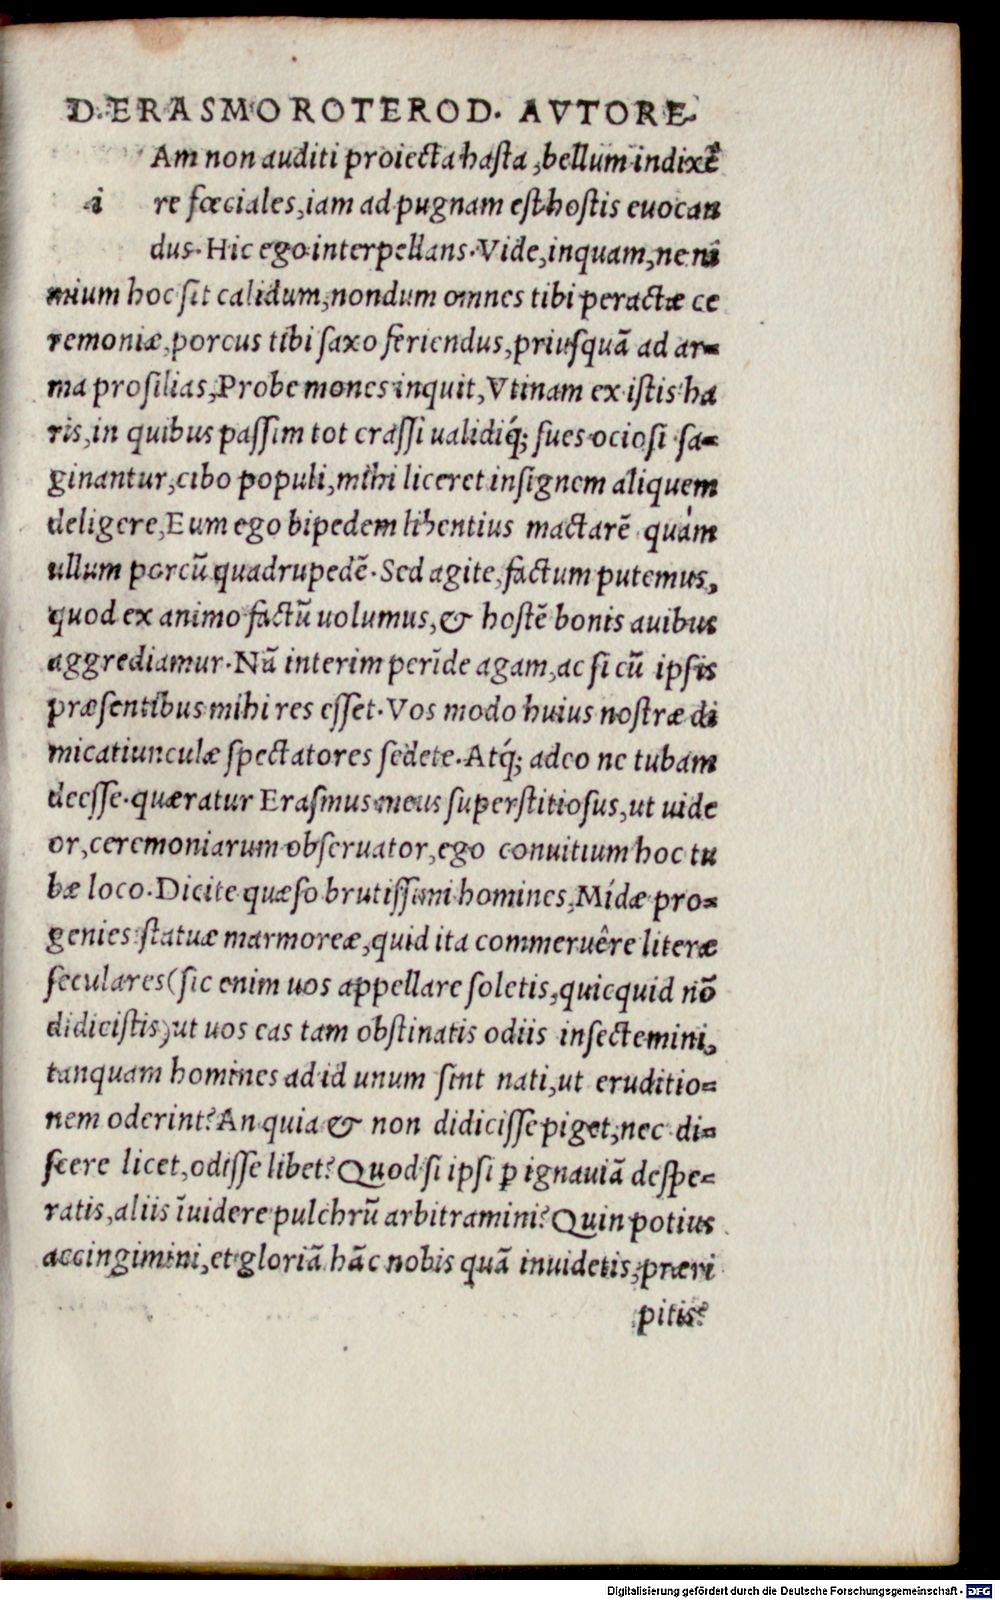 D. ERASMO ROTEROD. AVTORE
Am non auditi proiecta hasta, bellum indixē
i re fœciales, iam ad pugnam est hostis euocan
dus. Hic ego interpellans. Vide, inquam, ne ni
mium hoc sit calidum, nondum omnes tibi peractæ ce
remoniæ, porcus tibi saxo feriendus, priusquā ad ar=
ma prosilias, Probe mones inquit, Vtinam ex istis ha
ris, in quibus passim tot crassi ualidiq́; sues ociosi sa=
ginantur, cibo populi, mihi liceret insignem aliquem
deligere, Eum ego bipedem libentius mactarē quàm
ullum porcū quadrupedē. Sed agite, factum putemus,
quod ex animo factū uolumus, & hostē bonis auibus
aggrediamur. Nā interim perīde agam, ac si cū ipsis
præsentibus mihi res esset. Vos modo huius nostræ di
micatiunculæ spectatores sedete. Atq́; adeo ne tubam
deesse. quæratur Erasmus meus superstitiosus, ut uide
or, ceremoniarum obseruator, ego conuitium hoc tu
bæ loco. Dicite quæso brutissimi homines, Mídæ pro=
genies statuæ marmoreæ, quid ita commeruêre literæ
seculares (sic enim uos appellare soletis, quicquid nō
didicistis) ut uos eas tam obstinatis odiis insectemini,
tanquam homines ad id unum sint nati, ut eruditio=
nem oderint? An quia & non didicisse piget, nec di=
scere licet, odisse libet? Quod si ipsi ꝑ ignauiā despe=
ratis, aliis īuidere pulchrū arbitramini? Quin potius
accingimini, et gloriā hāc nobis quā inuidetis, præri
pitis?
Digitalisierung gefördert durch die Deutsche Forschungsgemeinschaft - DFG